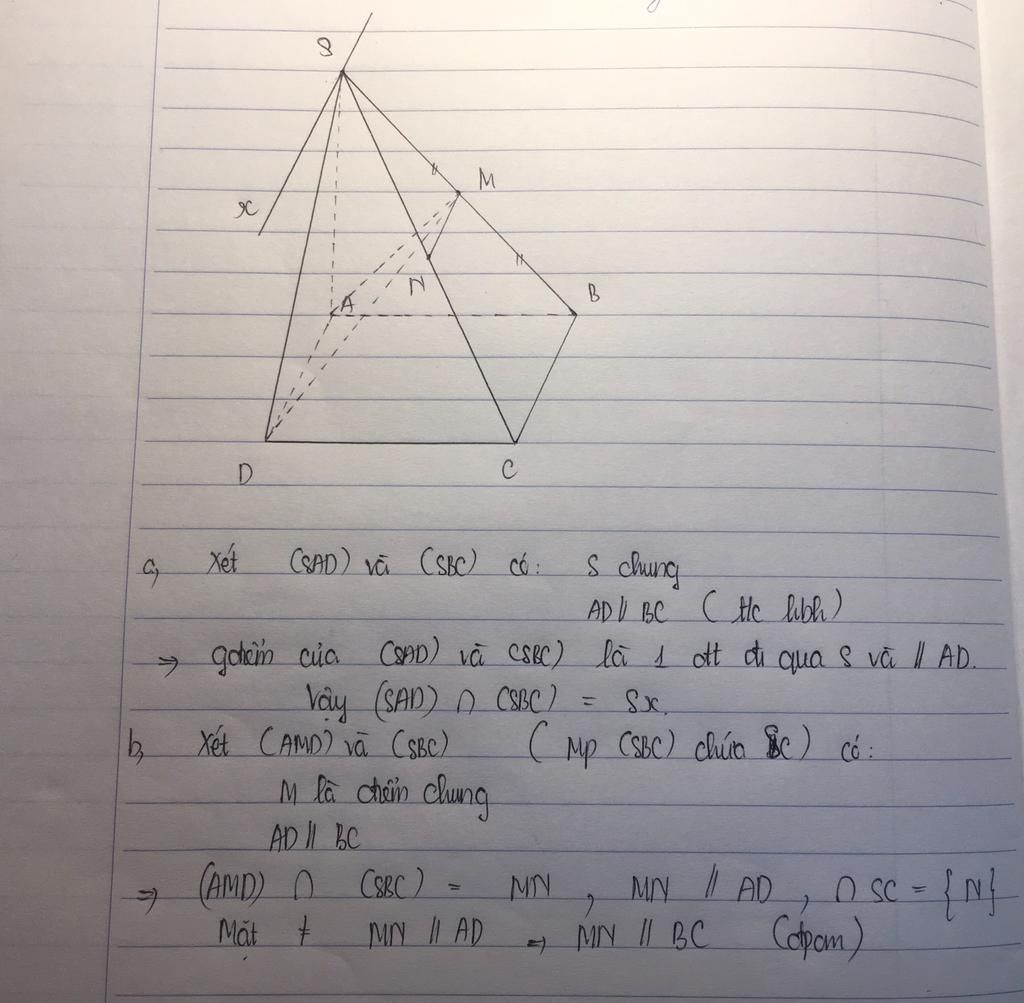 S
M
x
N
B
A
D
C
a, Xét (SAD) và (SBC) có: S chung
AD // BC ( t/c hbh )
=> gđiểm của (SAD) và (SBC) là 1 đtt đi qua S và // AD.
Vậy (SAD) ∩ (SBC) = Sx.
b, Xét (AMD) và (SBC) ( Mp (SBC) chứa SC ) có:
M là điểm chung
AD // BC
=> (AMD) ∩ (SBC) = MN , MN // AD , ∩ SC = {N}
Mặt ≠ MN // AD => MN // BC (đpcm)